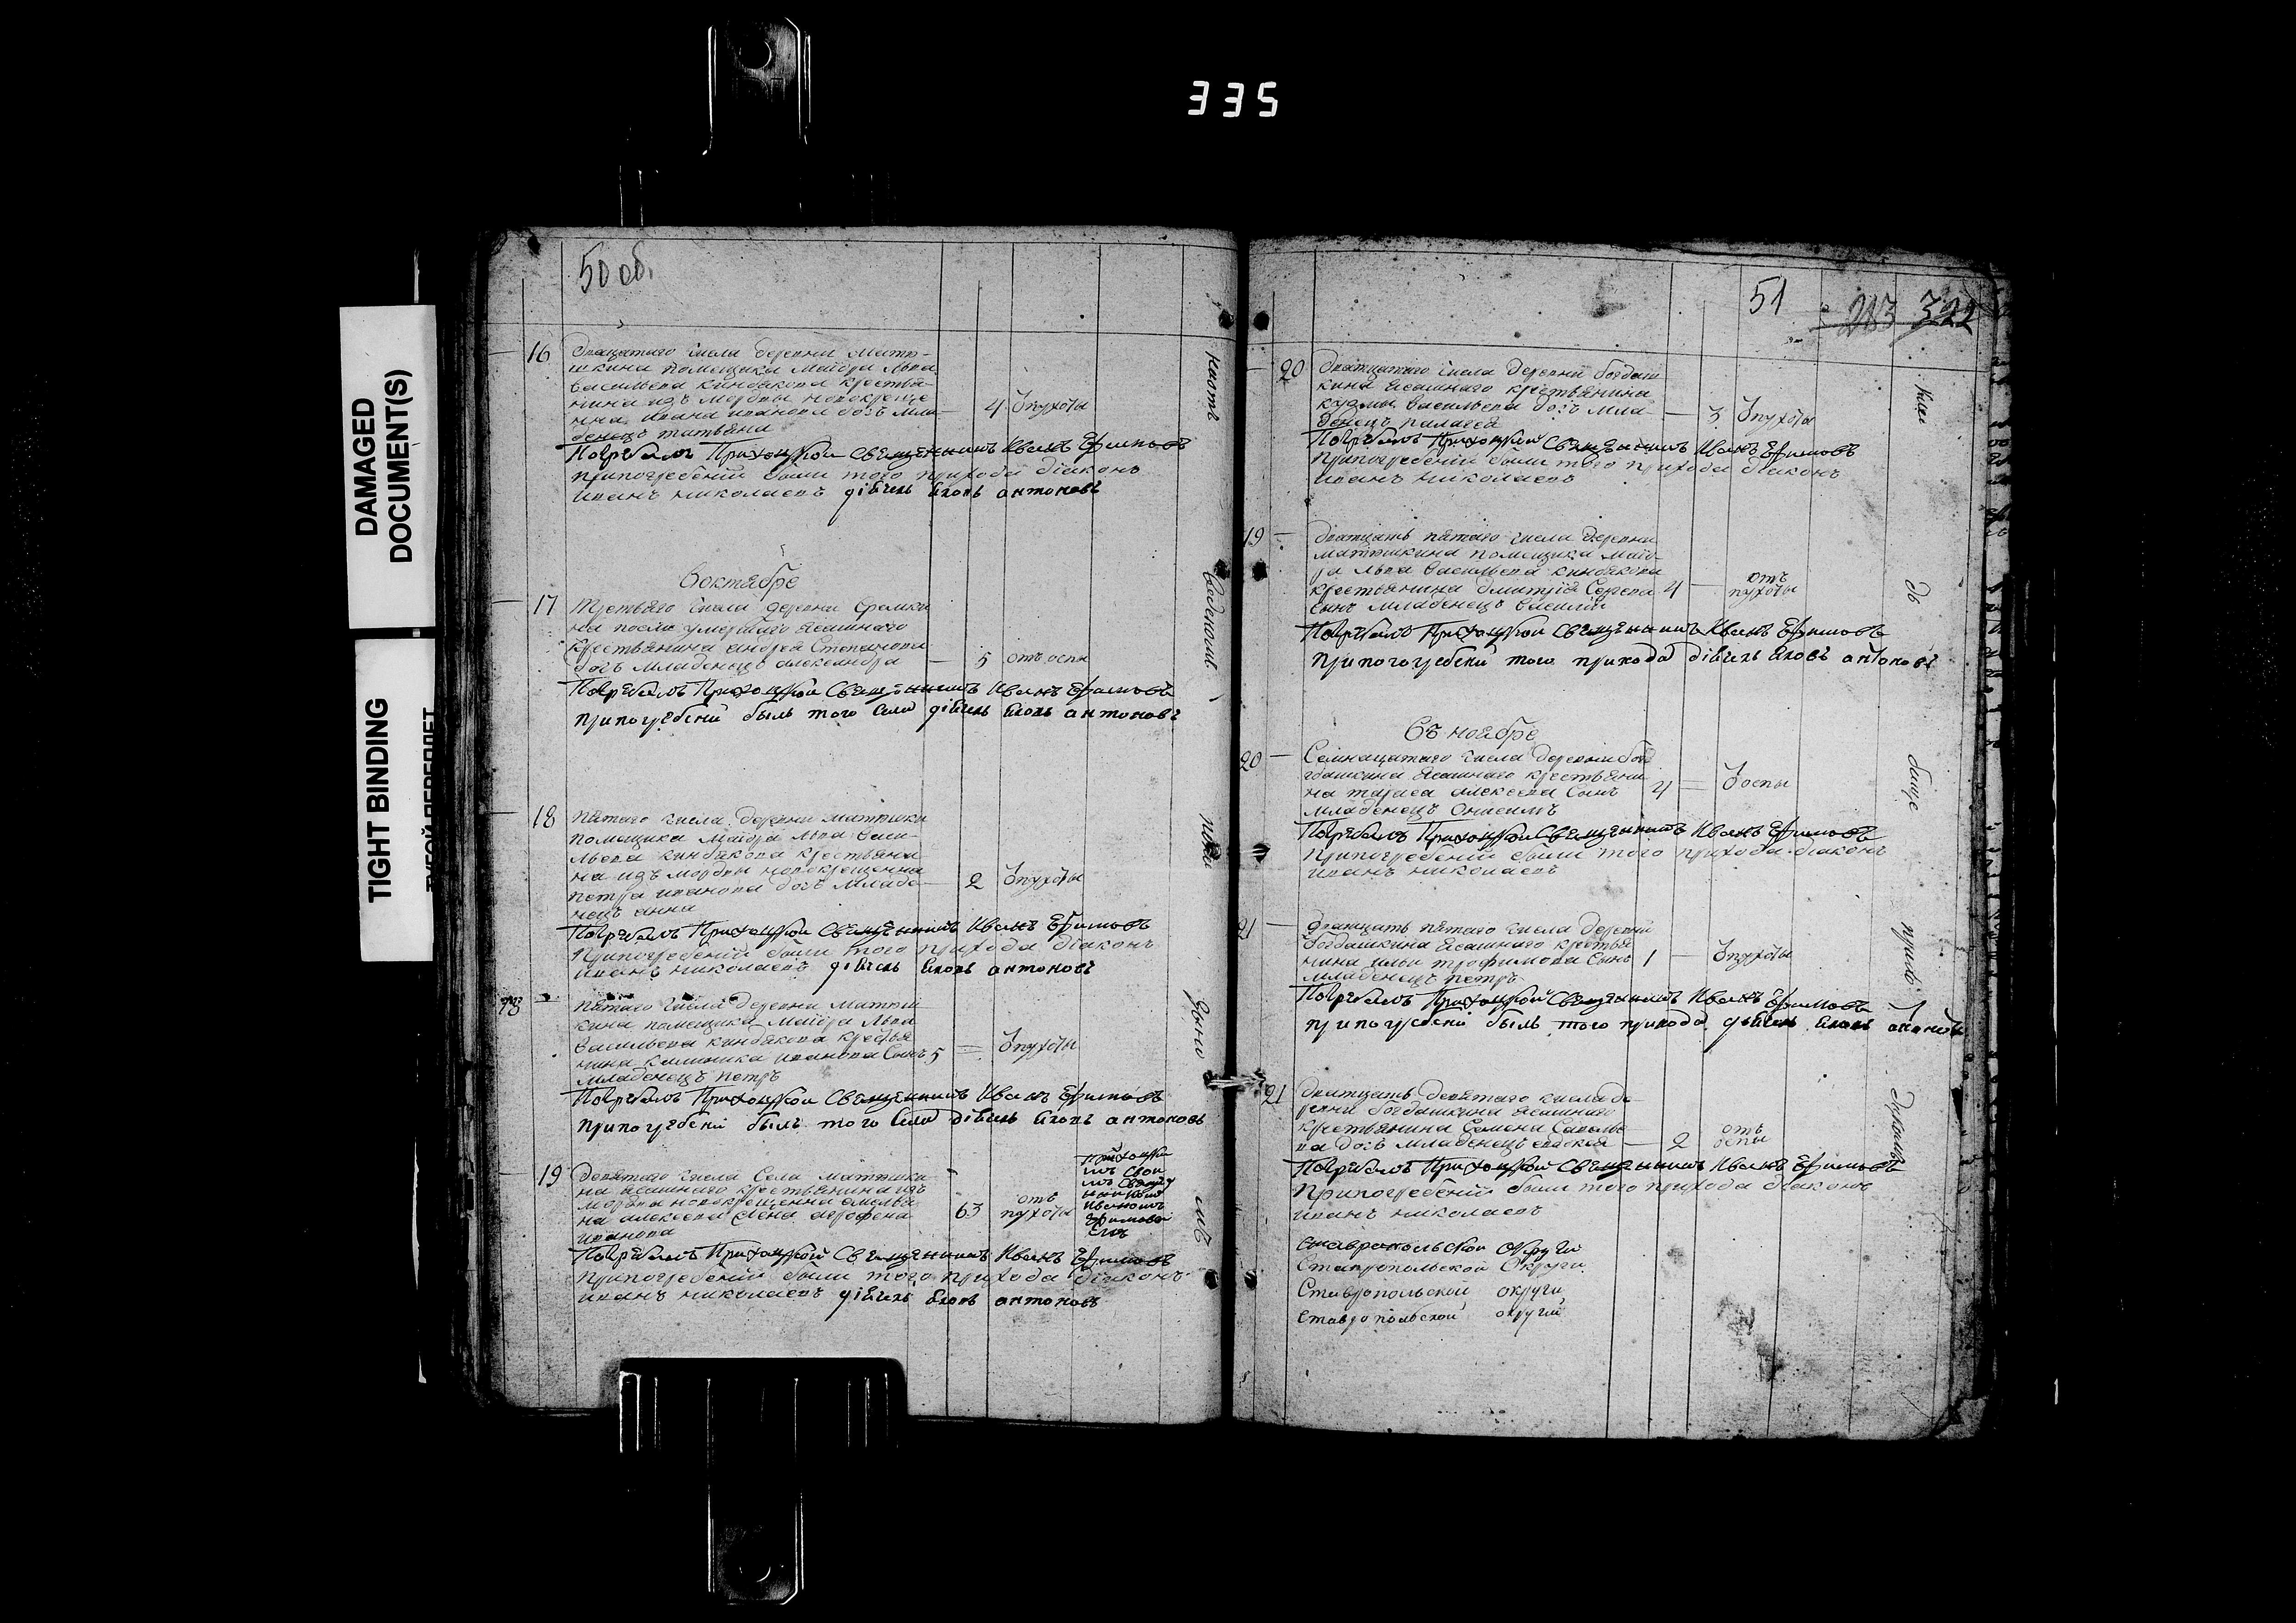 335
DAMAGED
DOCUMENT(S)
TIGHT BINDING
50 об.
16 двацатаго числа деревни матю-
шкина помещика маиора льва
васильева киндякова крестья-
нина изъ мордвы новокреще
нна ивана иванова дочь мла-
денецъ татьяна
4 ѿпухоты
Погребалъ Приходцкой Священникъ Иванъ Ефимовъ
припогребении были того прихода диаконъ
иванъ николаевъ дьячекъ яковъ антоновъ
Воктябре
17 третьяго числа деревни еремки
на после умершаго ясашнаго
крестьянина андрея Степанова
дочь младенецъ александра
5 отъ оспы
Погребалъ Приходцкой Священникъ Иванъ Ефимовъ
припогребении былъ того села дьячекъ яковъ антоновъ
18 пятаго числа деревни матюшки
помещика маиора льва васи-
льева киндякова крестьяни
на изъ мордвы новокрещенна
петра иванова дочь младе-
нецъ анна
2 ѿпухоты
Погребалъ Приходцкой Священникъ Иванъ Ефимовъ
припогребении были того прихода диаконъ
иванъ николаевъ дьячекъ яковъ антоновъ
пятаго числа деревни матюш
кина помещика маиора льва
васильева киндякова крестья
нина калинника иванова Сынъ
младенецъ петръ
5 ѿпухоты
Погребалъ Приходцкой Священникъ Иванъ Ефимовъ
припогребении былъ того села дьячекъ яковъ антоновъ
19 девятаго числа Села матюшки
на ясашнаго крестьянина изъ
мордвы новокрещенна емелья
на алексеева жена агрофена
иванова
63 отъ
пухоты
Погребалъ Приходцкой Священникъ Иванъ Ефимовъ
припогребении были того прихода диаконъ
иванъ николаевъ дьячекъ яковъ антоновъ
51 322
20 дватцатаго числа деревни богдаш
кина ясашнаго крестьянина
кузмы васильева дочь мла
денецъ палагея
3 ѿпухоты
Погребалъ Приходцкой Священникъ Иванъ Ефимовъ
припогребении были того прихода диаконъ
иванъ николаевъ
19 дватцать пятаго числа деревни
матюшкина помещика маио-
ра льва васильева киндякова
крестьянина дмитрия Сергеева
сынъ младенецъ василий
4 отъ
пухоты
Погребалъ Приходцкой Священникъ Иванъ Ефимовъ
припогребении того прихода дьячекъ яковъ антоновъ
Въ ноябре
20 Семнацатаго числа деревни бог
гдашкина ясашнаго крестьяни
на тараса алексеева Сынъ
младенецъ Онисимъ
4 ѿоспы
Погребалъ Приходцкой Священникъ Иванъ Ефимовъ
припогребении были того прихода диаконъ
иванъ николаевъ
21 дватцать пятаго числа деревни
богдашкина ясашнаго крестья
нина ильи трофимова Сынъ
младенецъ петръ
1 ѿпухоты
Погребалъ Приходцкой Священникъ Иванъ Ефимовъ
припогребении былъ того прихода дьячекъ яковъ антоновъ
21 дватцать девятаго числа де
ревни богдашкина ясашнаго
крестьянина Семена Савелье
ва дочь младенецъ евдокея
2 отъ
оспы
Погребалъ Приходцкой Священникъ Иванъ Ефимовъ
припогребении были того прихода диаконъ
иванъ николаевъ
ставропольской округи
Ставропольской Округи
Ставропольской округи
ставропольской округи